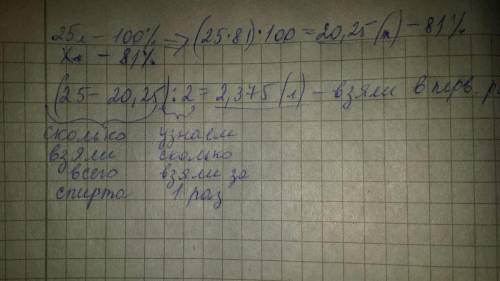 25л – 100% ⇒ (25·81):100 = 20,25 (л) – 81%
Xл – 81%
(25 – 20,25) : 2 = 2,375 (л) – взяли в перв. р
сколько узнаем
взяли сколько
всего взяли за
спирта 1 раз